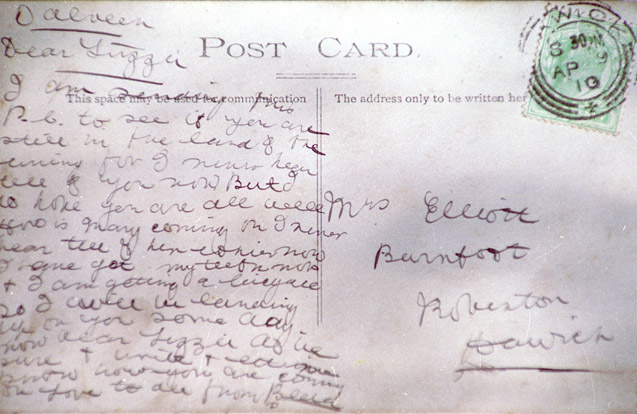 Dalveen
Dear Lizzie
POST CARD.
This space may be used for communication
The address only to be written her
I am sending this
P.C. to see if you are
still in the land of the
living for I never hear
tell of you now But I
do hope you are all well
How is Mary coming on I never
hear tell of her either now
I have got my teeth now
& I am getting a
so I will be landing
up on you some day
now dear Lizzie as be
sure & write & let me
know how you are coming
on love to all from
Mrs Elliott
Burnfoot
Roberton
Hawick
AP
10